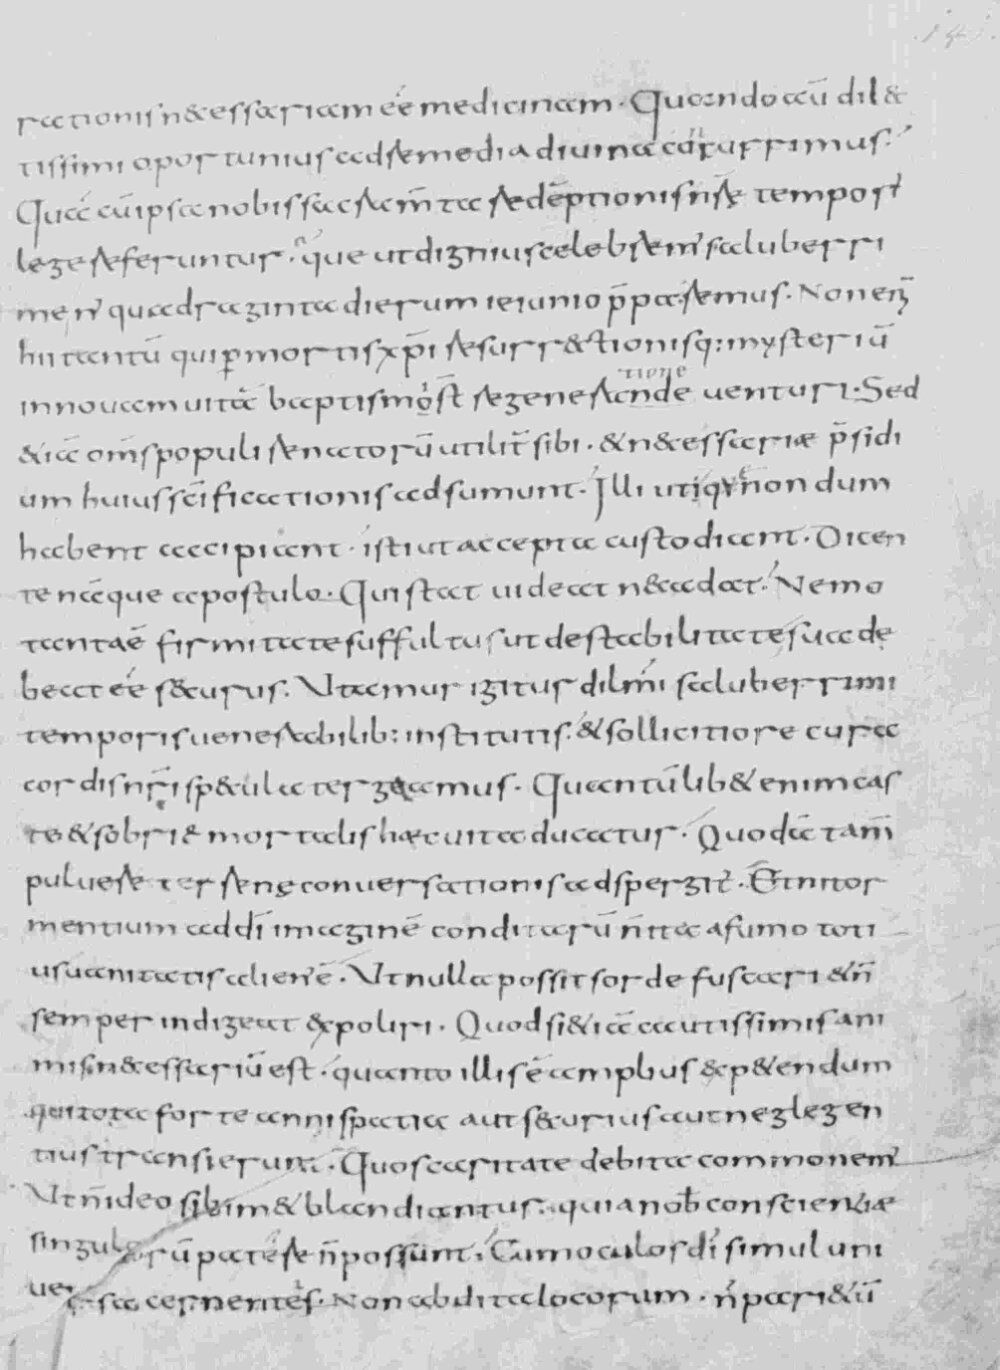 rationis n&essariam eē medicinam. Quando aū dil&
tissimi oportunius ad remedia diuina currimus.
Quā cū ipsa nobis sacram̄ta redēptionis nr̄ę tempor̄
lege referuntur. que ut dignius celebrem' saluberri
me n̄ quadraginta dierum ieiunio p̄paremus. Non enī
hii tantū qui p mortis xp̄i resurr&tionisq: mysteriū
in nouam uitā baptism̄ regeneratione uenturi. Sed
&iā om̄s populi renatorū utilit̄ sibi. & n&essariæ p̄sidi
um huius sc̄ificationis adsumunt. Illi utiq; ut q̄ non dum
habent accipiant. isti ut accepta custodiant. Dicen
te nāque apostulo. Qui stat uideat ne cadat. Nemo
tantaē firmitate suffultus ut de stabilitate sua de
beat eē s&urus. Utamur igitur dilm̄i saluberrimi
temporis uenerabilib: institutis. & sollicitiore cura
cordis nr̄i sp&ula tergeamus. Quantūlib& enim cas
te & sobrie mortalis hæc uita ducatur. Quodā tam̄
puluere terrenę conuersationis adspergit̄. Et nitor
mentium ad dī imaginē conditarū n̄ ita a fumo toti
us uanitatis alien' ē. Ut nulla possit sorde fuscari & n̄
semper indigeat expoliri. Quod si &iā cautissimis ani
mis n&essariū est. quanto illis ē amplius exp&endum
qui tota forte anni spatia aut s&urius aut neglegen
tius transierunt. Quos caritate debita commonem'
Ut n̄ ideo sibim& blandiantur. quia nob̄ conscientiæ
singulorū patere n̄ possunt. Cum oculos dī simul uni
uersa cernentes. Non abdita locorum. n̄ pari&ū